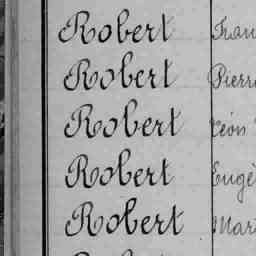 Robert
Robert Pierre
Robert Léon
Robert Eugè
Robert Mar